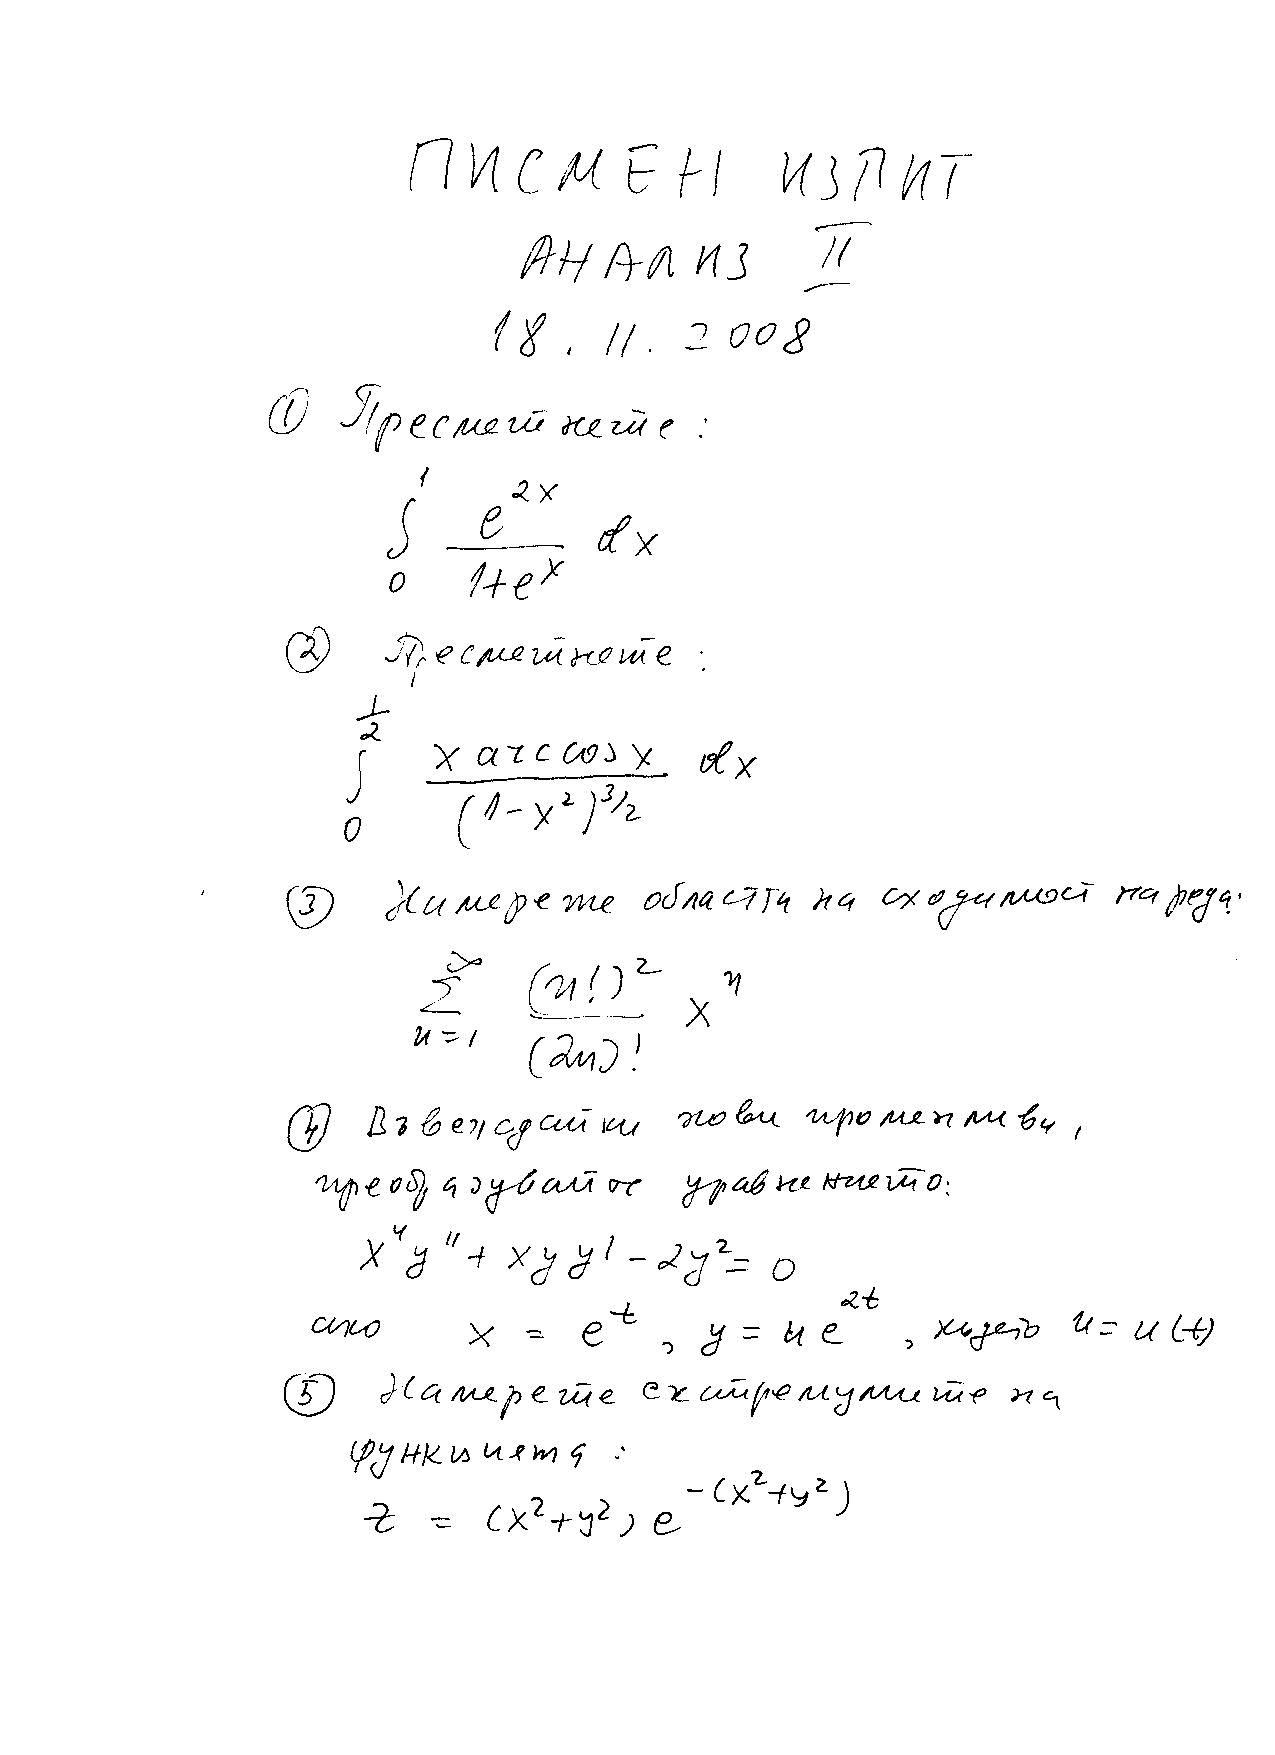 ПИСМЕН ИЗПИТ
АНАЛИЗ II
18.11.2008
① Пресметнете:
∫₀¹ e^{2x} / (1+e^x) dx
② Пресметнете:
∫₀^{1/2} x arccos x / (1-x²)^{3/2} dx
③ Намерете областта на сходимост на реда:
∑_{n=1}^∞ (n!)² / (2n)! x^n
④ Въвеждайки нови променливи,
преобразувайте уравнението:
x⁴y" + xyy' - 2y² = 0
ако x = e^t, y = ue^{2t}, където u = u(t)
⑤ Намерете екстремумите на
функцията:
z = (x²+y²) e^{-(x²+y²)}